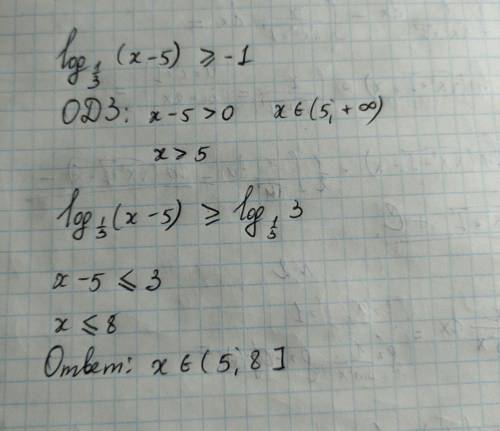 log_{1/3} (x-5) ≥ -1
ОДЗ: x-5>0 x∈(5; +∞)
x>5
log_{1/3}(x-5) ≥ log_{1/3} 3
x-5 ≤ 3
x ≤ 8
Ответ: x∈(5; 8]